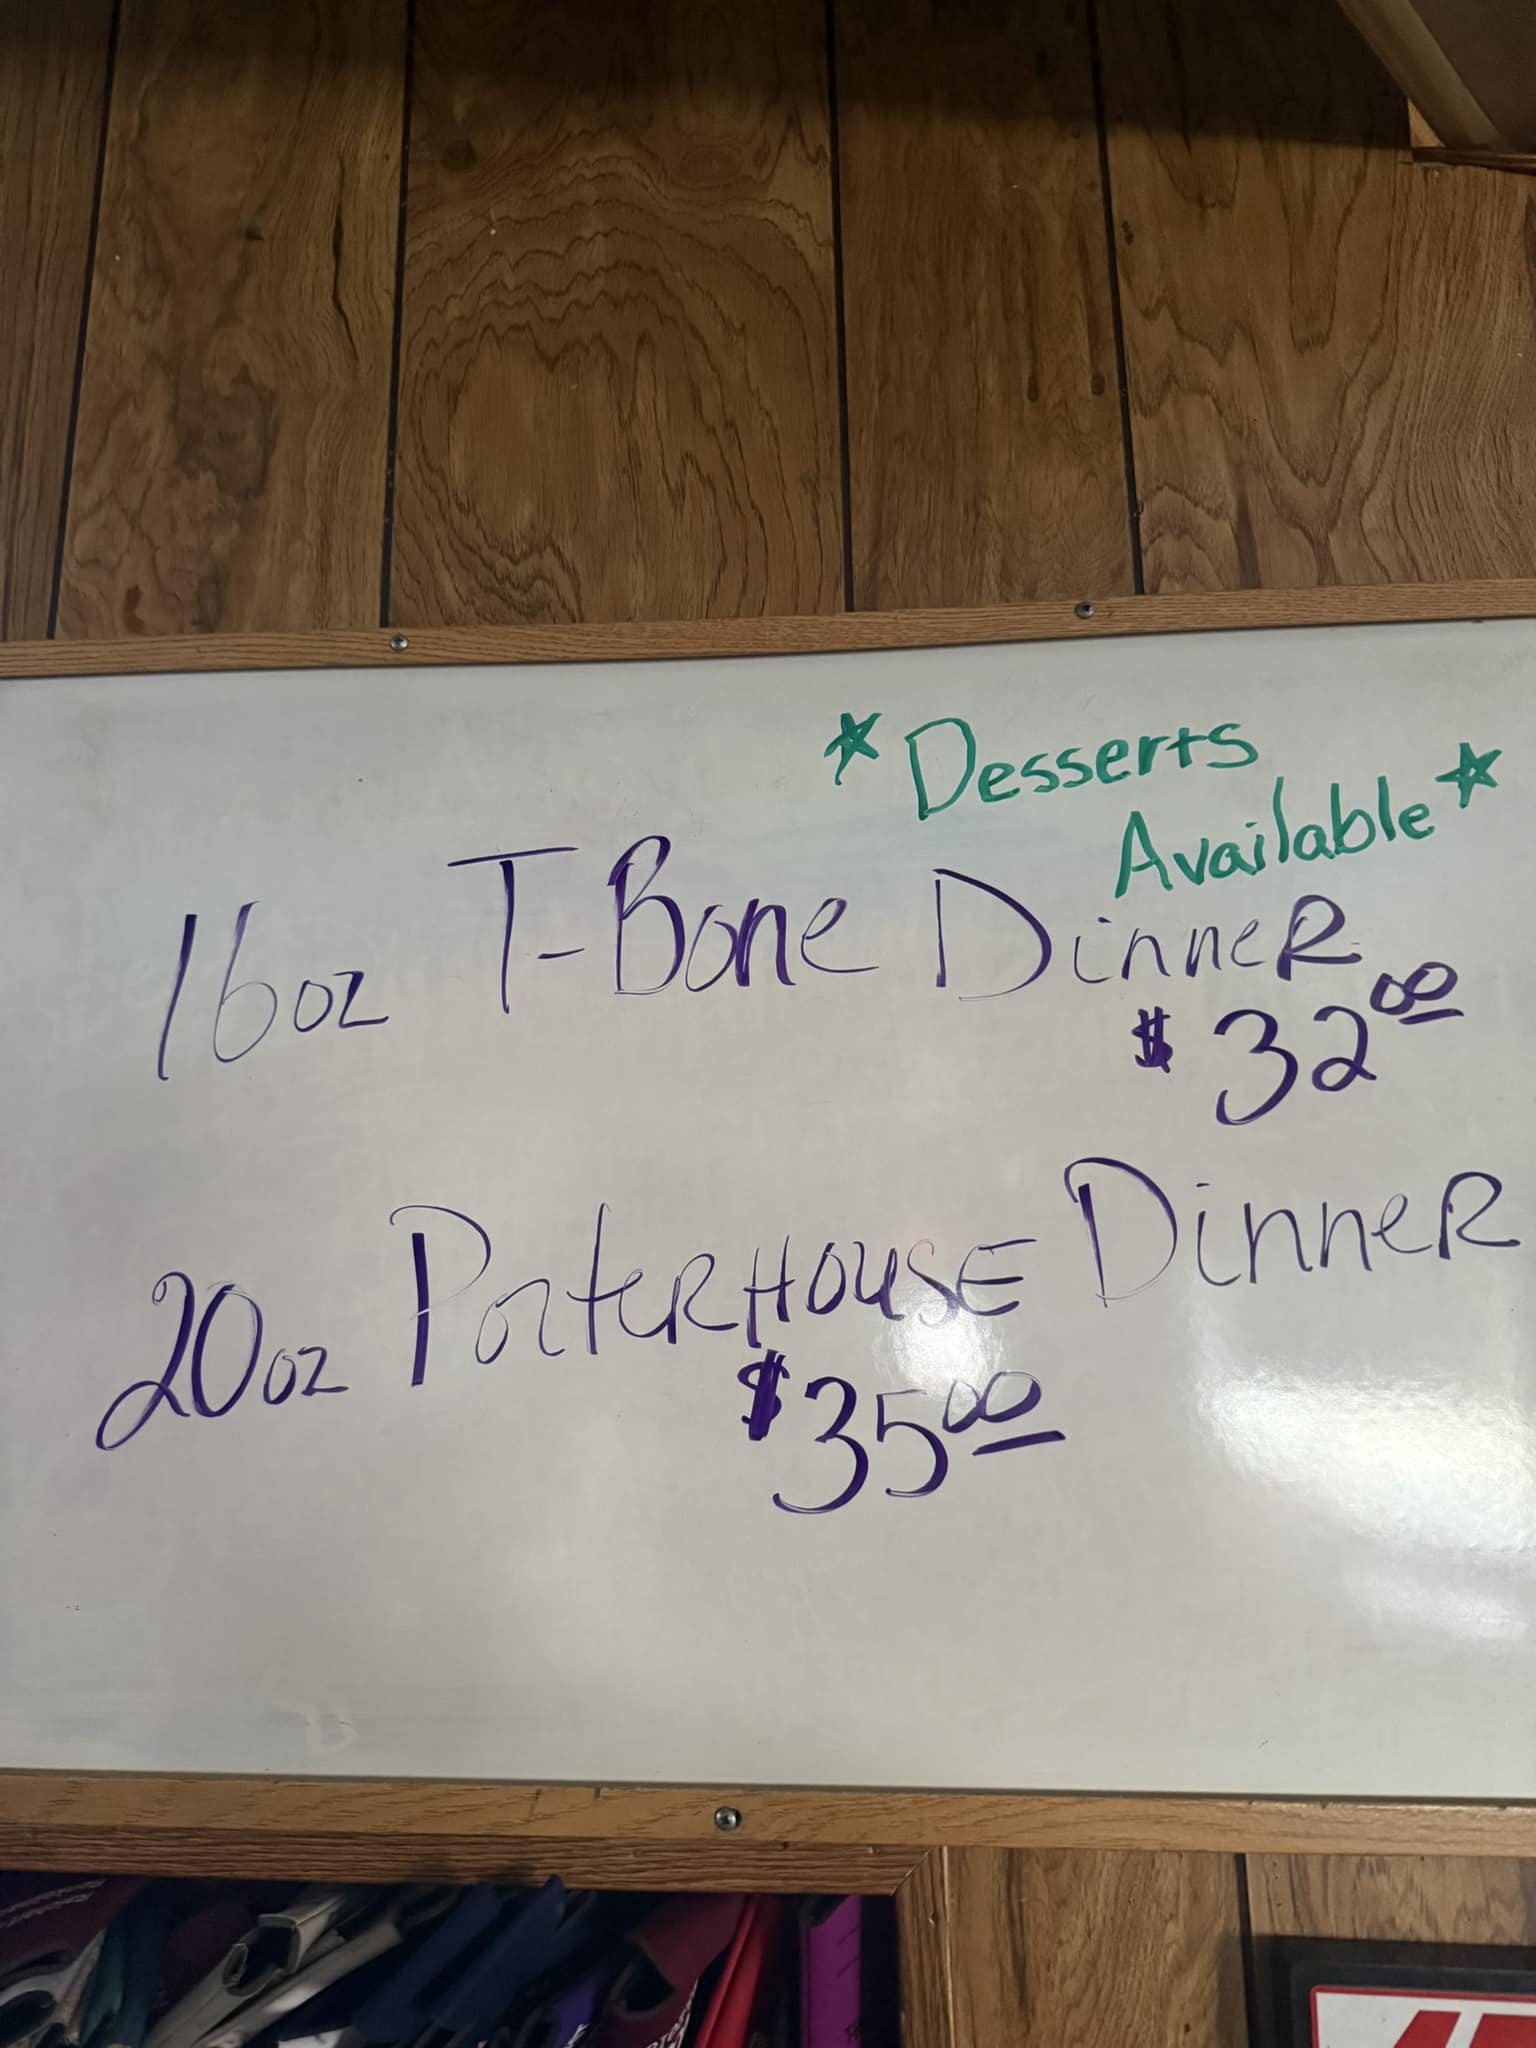 *Desserts
Available*
16oz T-Bone Dinner
$32.00
20oz PorterHouse Dinner
$35.00